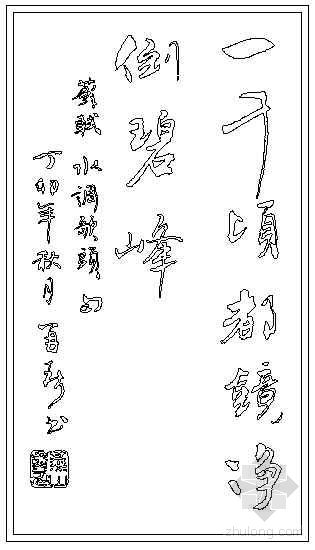 一千頃都鏡净
倒碧峰
蘇軾水調歌頭句
丁卯年秋月
zhulong.com